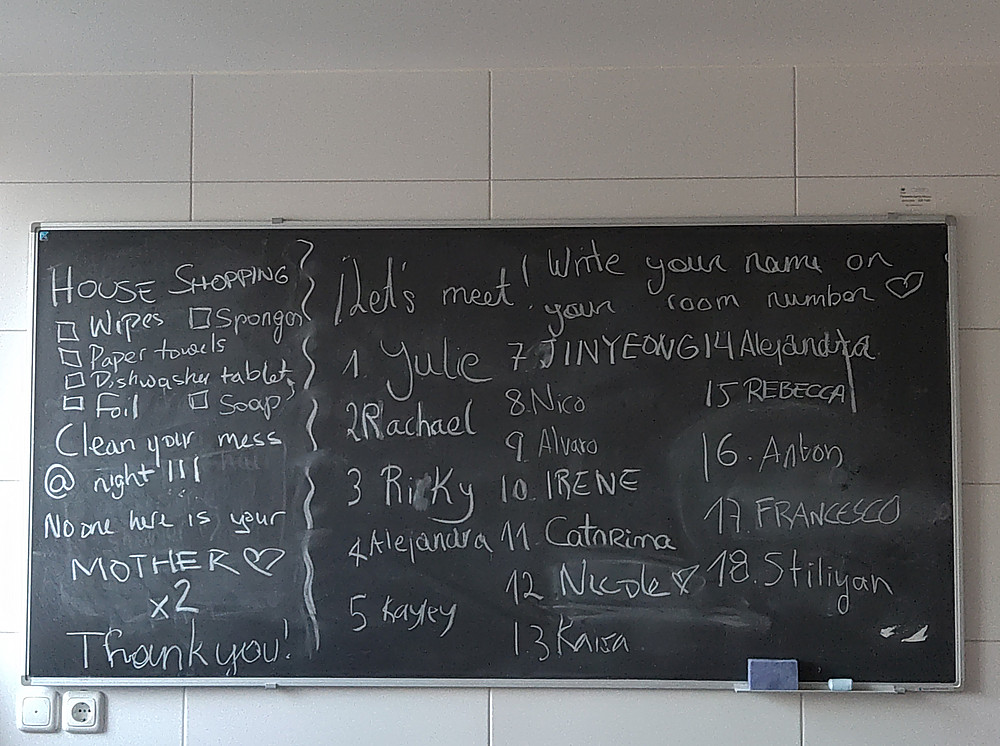 HOUSE SHOPPING
□ Wipes □ Sponges
□ Paper towels
□ Dishwasher tablets
□ Foil □ Soap
Clean your mess
@ night !!!
No one here is your
MOTHER ♡
x2
Thank you!
¡Let's meet! Write your name on
your room number ♡
1. Julie
2 Rachael
3 Ricky
4 Alejandra
5 Kayley
7. JINYEONG
8. Nico
9 Alvaro
10. IRENE
11. Catarina
12 Nicole ♡
13 Kaisa
14 Alejandra
15 REBECCA
16. Anton
17. FRANCESCO
18. Stiliyan